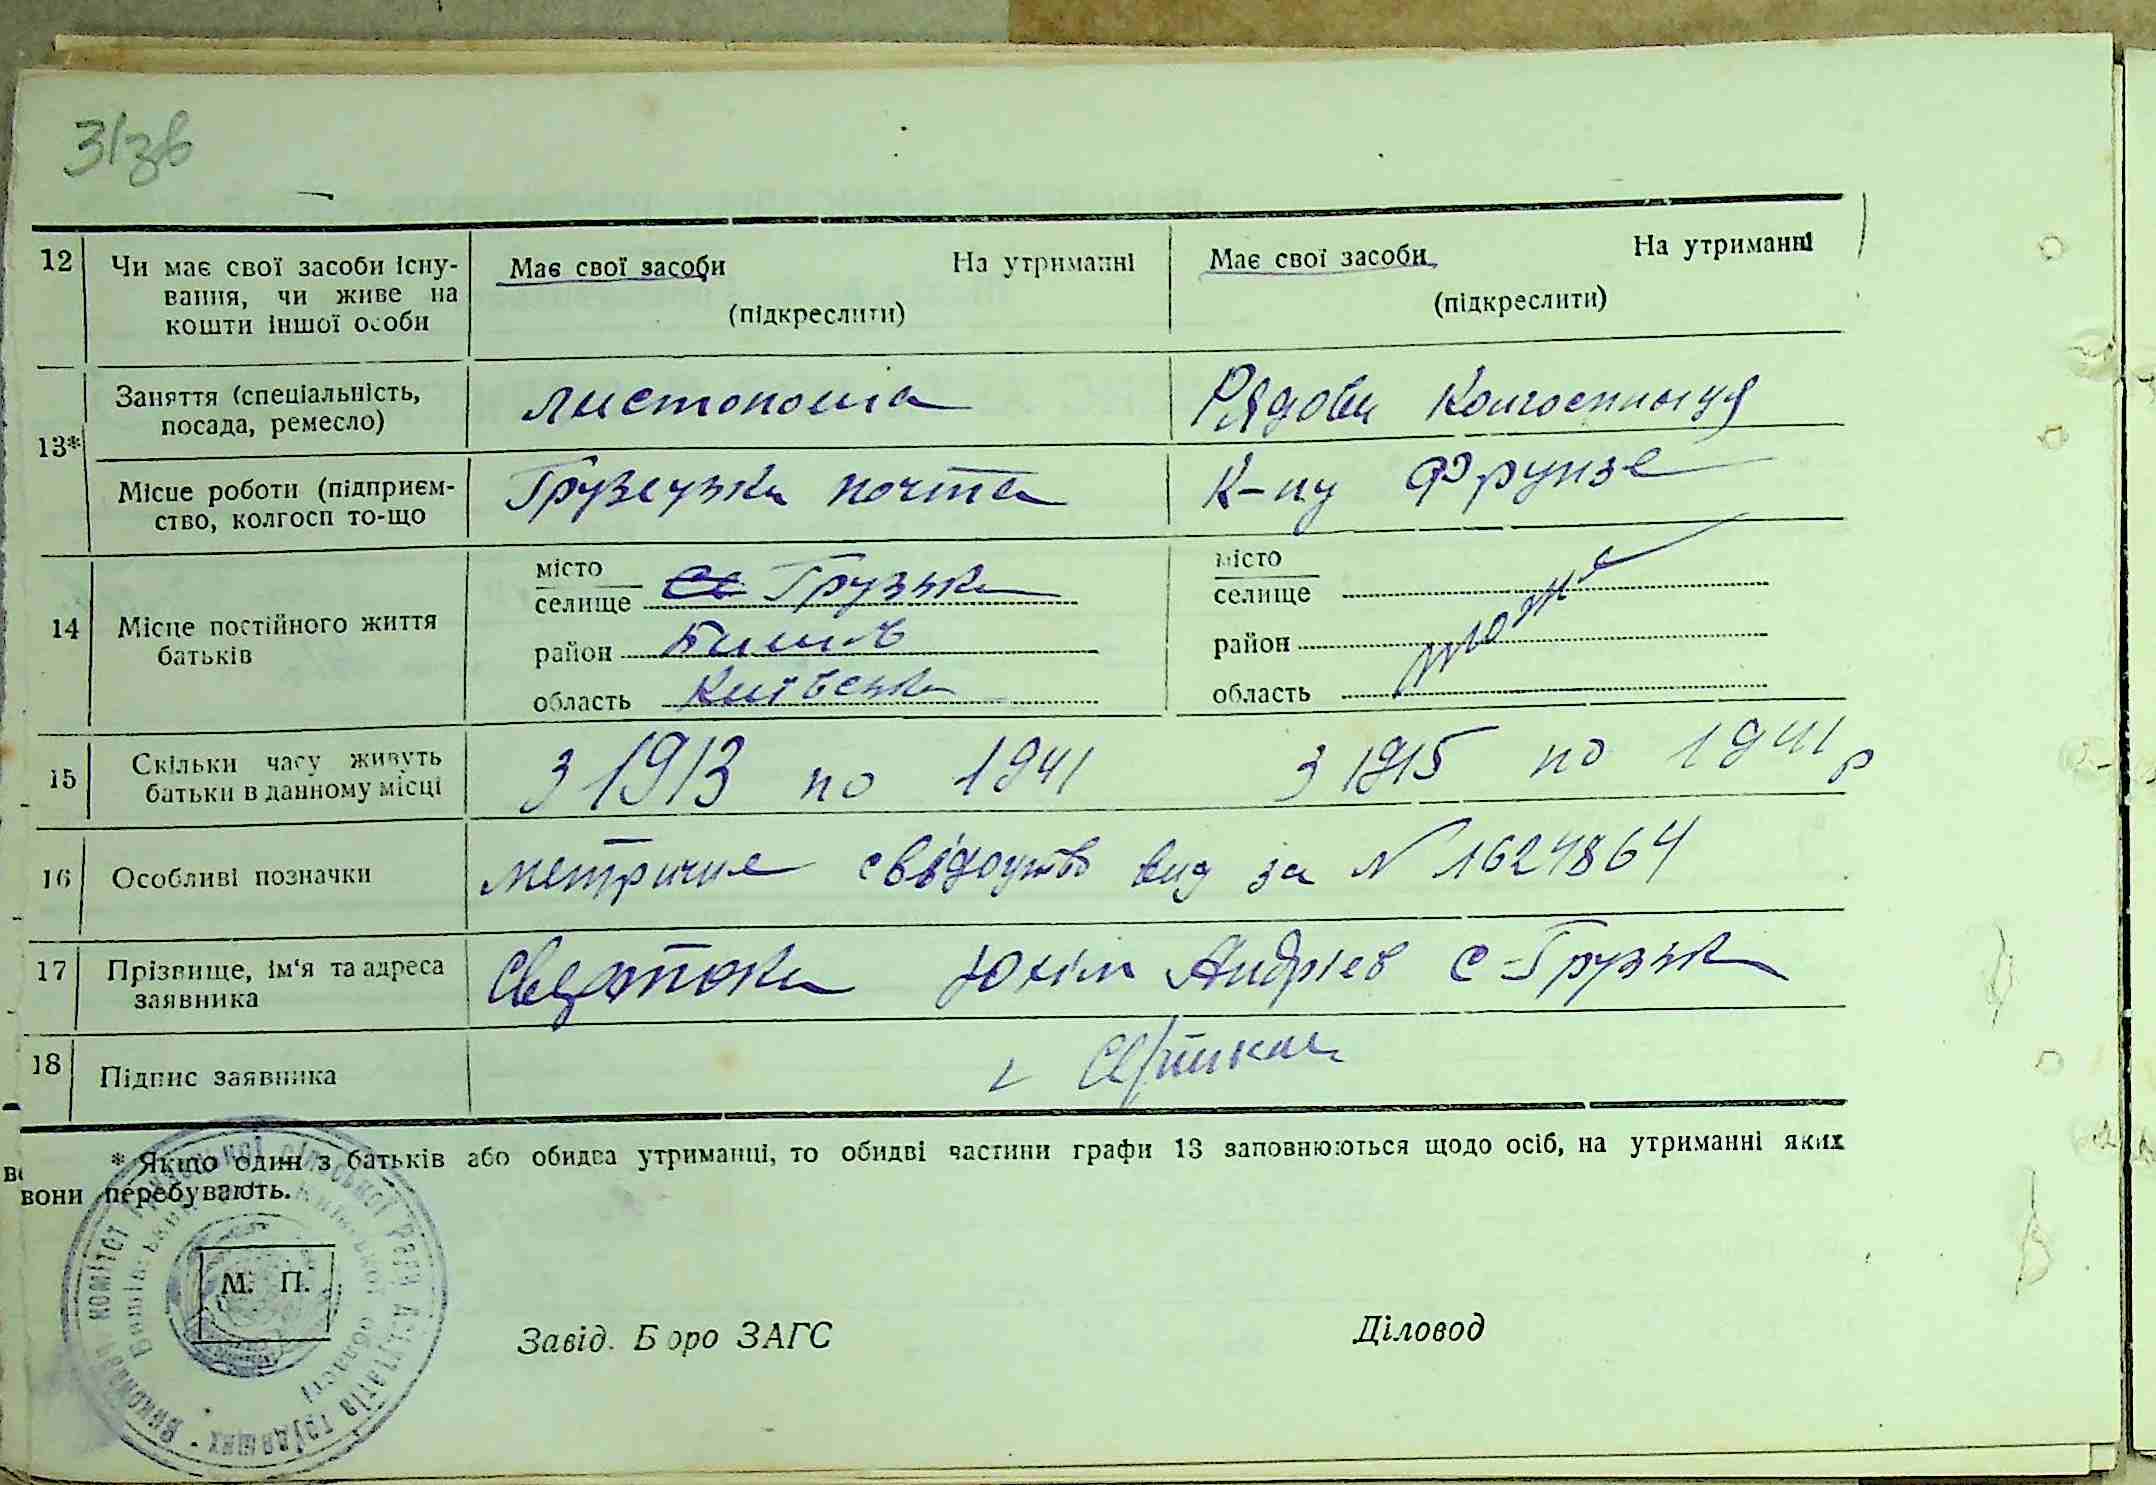 31зв
12 Чи має свої засоби існу-
вання, чи живе на
кошти іншої особи
Має свої засоби На утриманні
(підкреслити)
Має свої засоби На утриманні
(підкреслити)
13*
Заняття (спеціальність,
посада, ремесло)
листоноша
Рядови Колгоспниця
Місце роботи (підприєм-
ство, колгосп то-що
Грузсузка почта
К-пу Фрунзе
14 Місце постійного життя
батьків
місто
селище Грузька
район Бишів
область Київська
місто
селище
район
область
тоже
15 Скільки часу живуть
батьки в данному місці
З 1913 по 1941
З 1915 по 1941 р
16 Особливі позначки
метричне свідоцтво вид за N 1624864
17 Прізвище, ім'я та адреса
заявника
Юхім Андрієв с-Грузька
18 Підпис заявника
* Якщо один з батьків або обидва утриманці, то обидві частини графи 13 заповнюються щодо осіб, на утриманні яких
вони перебувають.
Виконавч комітет сільської Ради депутатів трудящих
Київської області
М. П.
Завід. Бюро ЗАГС
Діловод